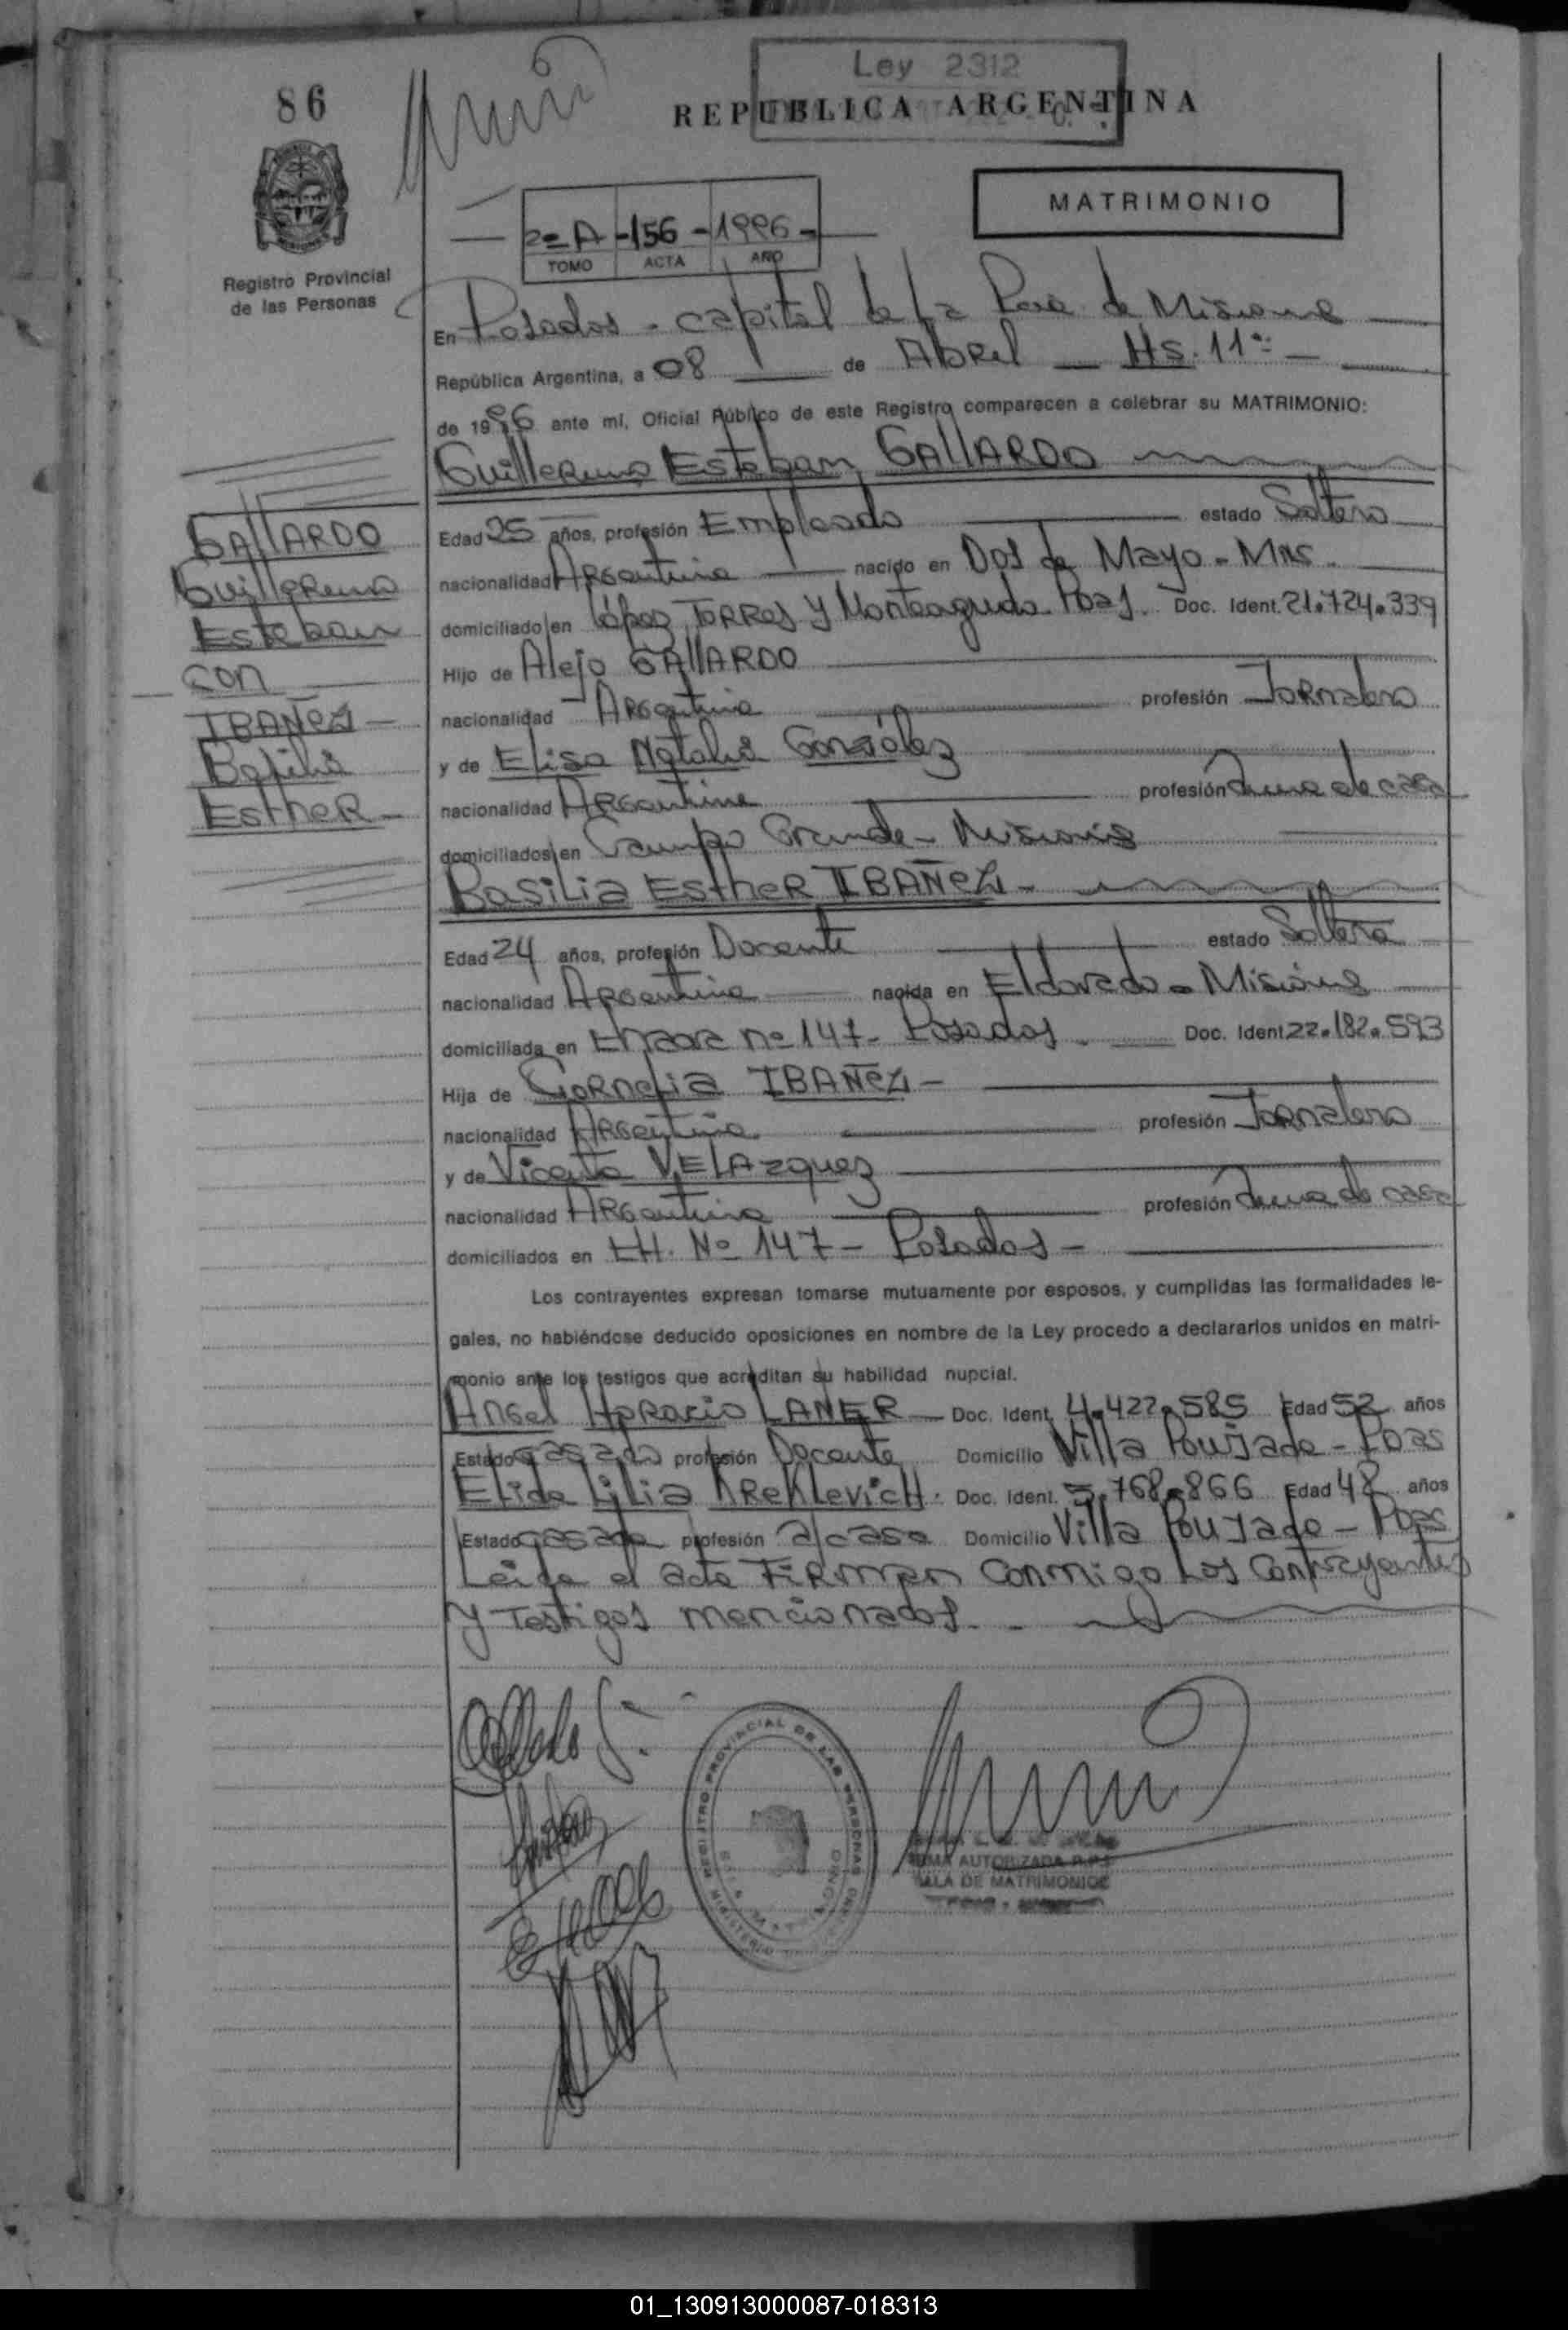 86
Ley 2312
REPUBLICA ARGENTINA
MATRIMONIO
2=A -156 -1996-
TOMO ACTA AÑO
Registro Provincial
de las Personas
En Posadas - capital de la Pcia de Misiones
República Argentina, a 08 de Abril Hs. 11=
de 1996 ante mí, Oficial Público de este Registro comparecen a celebrar su MATRIMONIO:
Guillermo Esteban GALLARDO
GALLARDO
Guillermo
Esteban
con
IBAÑEZ
Basilia
Esther
Edad 25 años, profesión Empleado estado Soltero
nacionalidad Argentina nacido en Dos de Mayo - Mns.
domiciliado en López TORRES y Monteagudo Pdas. Doc. Ident. 21.724.339
Hijo de Alejo GALLARDO
nacionalidad Argentina profesión Jornalero
y de Elisa Natalia González
nacionalidad Argentina profesión ama de casa
domiciliados en Campo Grande - Misiones
Basilia Esther IBAÑEZ -
Edad 24 años, profesión Docente estado Soltera
nacionalidad Argentina nacida en Eldorado - Misiones
domiciliada en nº 147 - Posadas. Doc. Ident. 22.182.593
Hija de Cornelia IBAÑEZ -
nacionalidad Argentina profesión Jornalero
y de Vicenta VELAzquez
nacionalidad Argentina profesión ama de casa
domiciliados en CH. Nº 147 - Posadas -
Los contrayentes expresan tomarse mutuamente por esposos, y cumplidas las formalidades le-
gales, no habiéndose deducido oposiciones en nombre de la Ley procedo a declararlos unidos en matri-
monio ante los testigos que acreditan su habilidad nupcial.
Angel Horacio LANER - Doc. Ident. 4.422.585 Edad 52 años
Estado casado profesión Docente Domicilio Villa Poujade - Pdas
Elida Lilia Doc. Ident. 5.768.866 Edad 48 años
Estado casada profesión a/casa Domicilio Villa Poujade - Pdas
Leída el acta FIRMAn conmigo los contrayentes
y Testigos mencionados.
REGISTRO PROVINCIAL DE LAS PERSONAS
MINISTERIO
FIRMA AUTORIZADA R.P.P.
SALA DE MATRIMONIOS
01_130913000087-018313